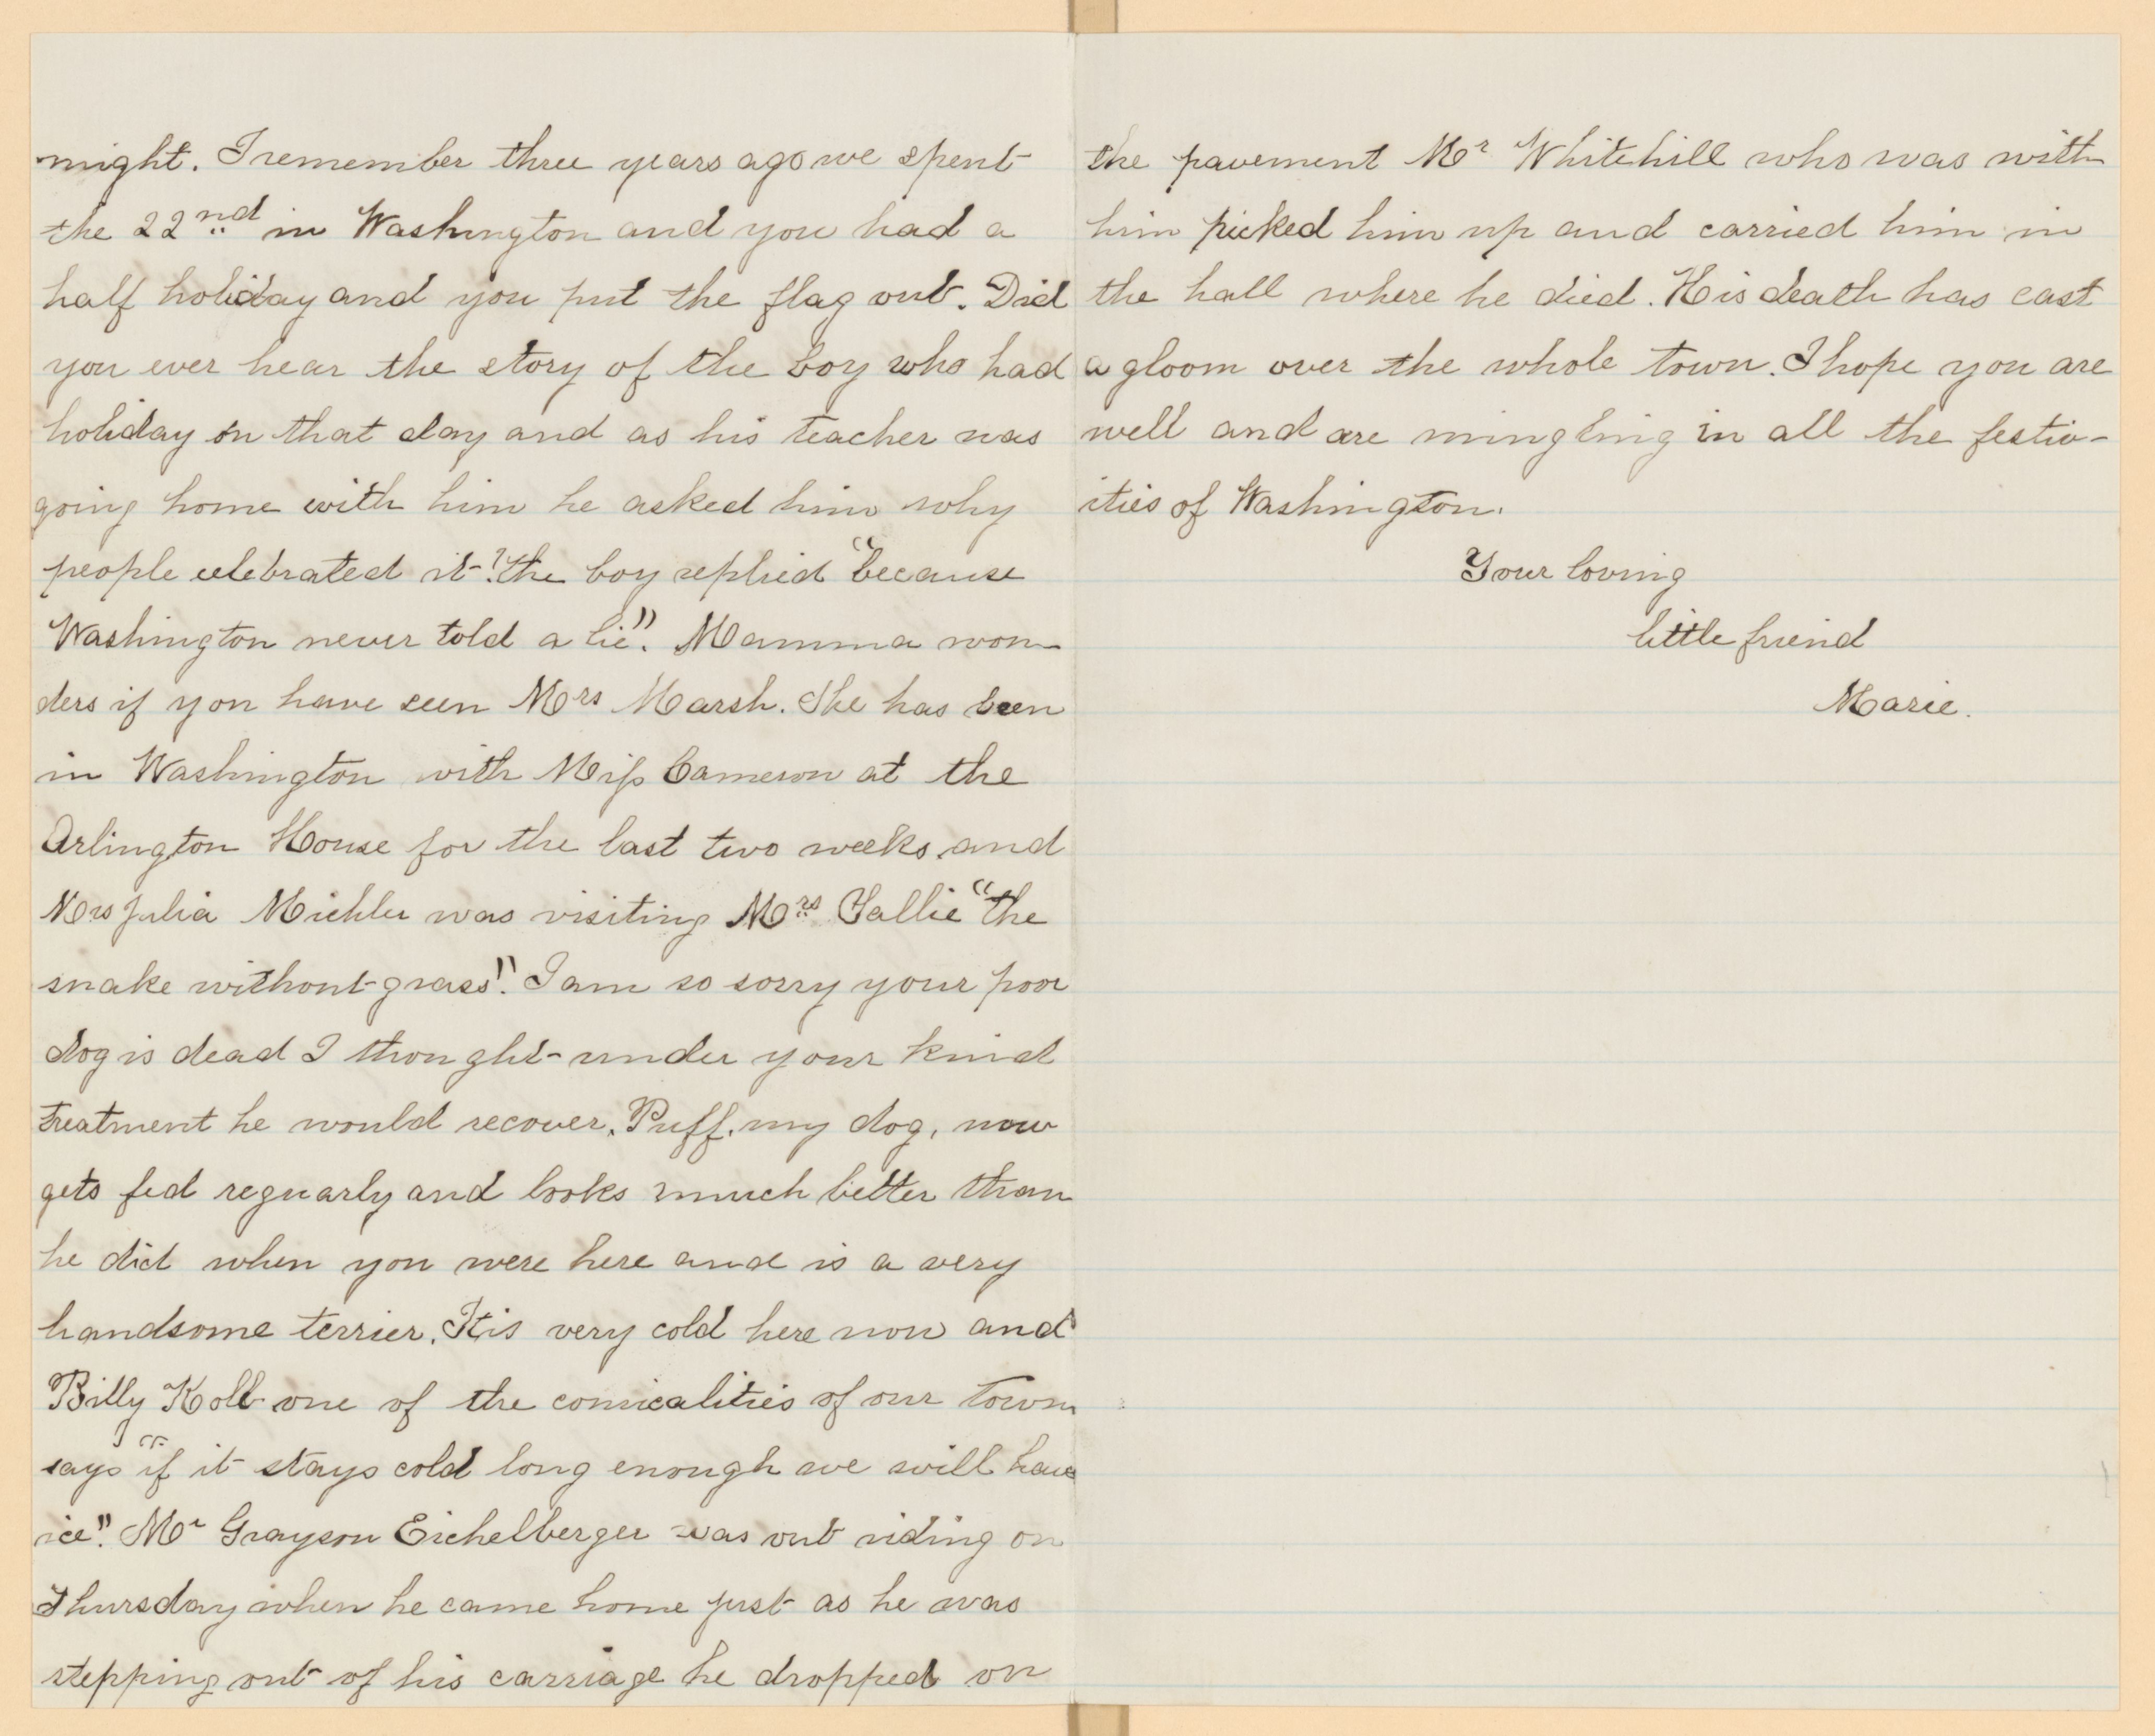 might. I remember three years ago we spent
the 22nd in Washington and you had a
half holiday and you put the flag out. Did
you ever hear the story of the boy who had
holiday on that day and as his teacher was
going home with him he asked him why
people celebrated it? the boy replied "because
Washington never told a lie". Mamma won-
ders if you have seen Mrs Marsh. She has been
in Washington with Miss Cameron at the
Arlington House for the last two weeks and
Mrs Julia Michler was visiting Mrs Sallie "the
snake without grass". I am so sorry your poor
dog is dead I thought under your kind
treatment he would recover. Puff, my dog, now
gets fed reguarly and looks much better than
he did when you were here and is a very
handsome terrier. It is very cold here now and
Billy Kolb one of the comicalities of our town
says "if it stays cold long enough we will have
ice". Mr Grayson Eichelberger was out riding on
Thursday when he came home just as he was
stepping out of his carriage he dropped on
the pavement Mr Whitehill who was with
him picked him up and carried him in
the hall where he died. His death has cast
a gloom over the whole town. I hope you are
well and are mingling in all the festiv-
ities of Washington.
Your loving
little friend
Marie.